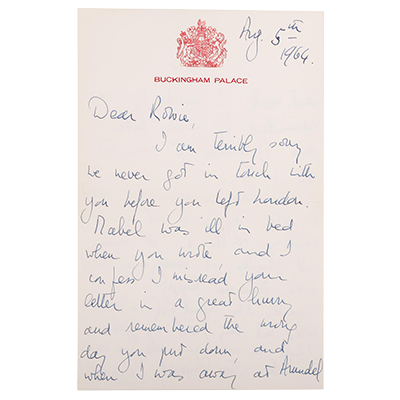 Aug. 5th
1964.
BUCKINGHAM PALACE
Dear Rowie,
I am terribly sorry
we never got in touch with
you before you left London.
Mabel was ill in bed
when you wrote and I
confess I misread your
letter in a great hurry
and remembered the wrong
day you put down, and
when I was away at Arundel